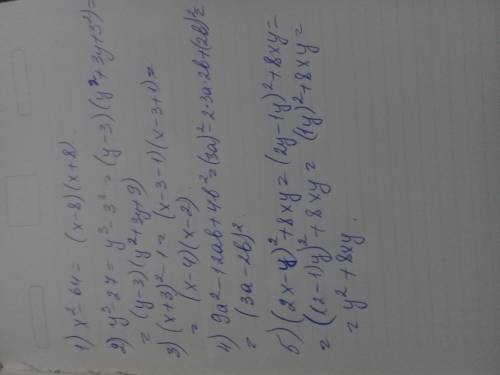 1) x² - 64 = (x-8)(x+8).
2) y³ - 27 = y³ - 3³ = (y-3)(y²+3y+3²) =
= (y-3)(y²+3y+9)
3) (x+3)² - 1 = (x-3-1)(x-3+1) =
= (x-4)(x-2).
4) 9a² - 12ab + 4b² = (3a)² - 2·3a·2b + (2b)² =
= (3a-2b)².
5) (2x-y)² + 8xy = (2y-1y)² + 8xy =
= ((2-1)y)² + 8xy = (1y)² + 8xy =
= y² + 8xy.